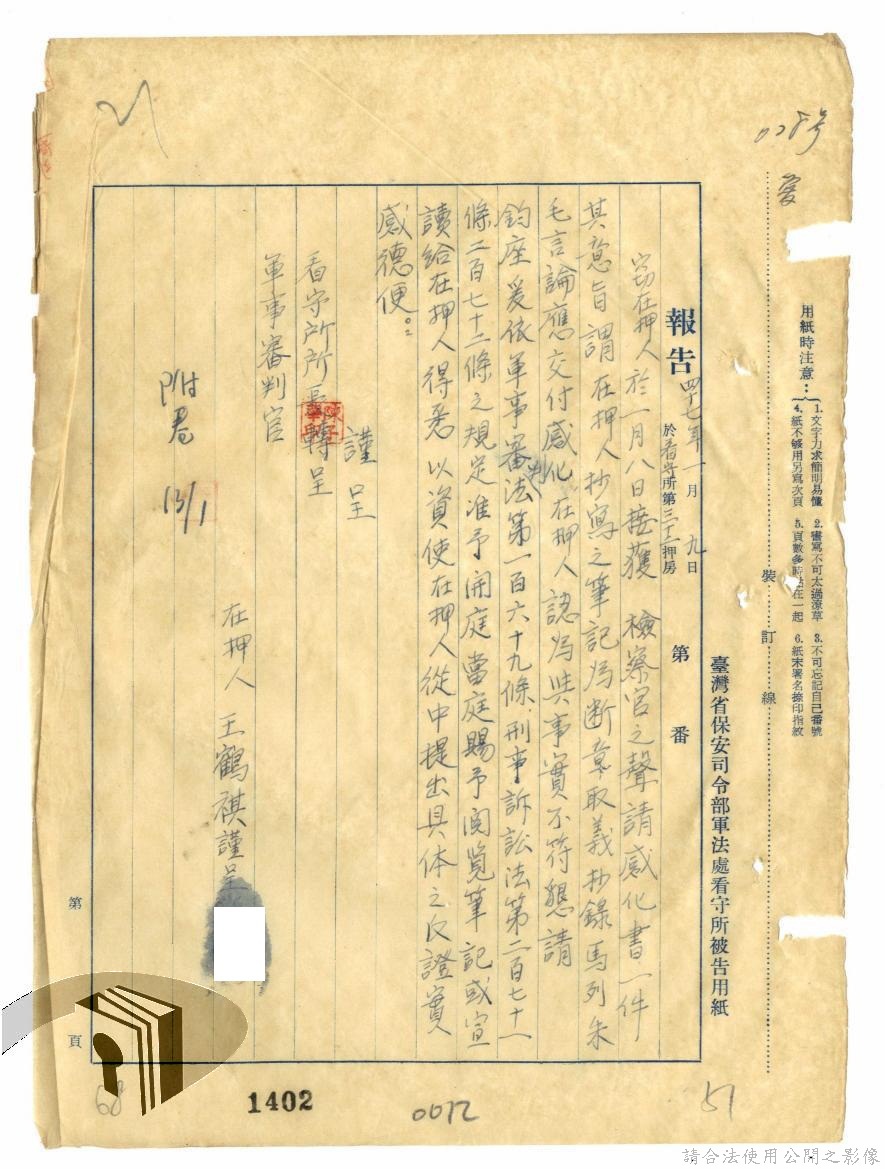 028号
愛
用紙時注意：
1. 文字力求簡明易懂
2. 書寫不可太過潦草
3. 不可忘記自己番號
4. 紙不够用另寫次頁
5. 頁數多時 在一起
6. 紙末署名捺印指紋
裝訂線
臺灣省保安司令部軍法處看守所被告用紙
報告 四十七年一月九日
於看守所第三十二押房
第 番
竊在押人於一月八日接獲 檢察官之聲請感化書一件
其意旨謂在押人抄寫之筆記為斷章取義抄錄馬列朱
毛言論應交付感化在押人認為與事實不符懇請
鈞座爰依軍事審判法第一百六十九條、刑事訴訟法第二百七十一
條二百七十二條之規定准予開庭當庭賜予閱覽筆記或宣
讀給在押人得悉以資使在押人從中提出具体之反證實
感德便。
謹呈
看守所所長轉呈
軍事審判官
在押人 王鶴祺謹呈
附卷
13/1
第 頁
68
1402
0072
51
請合法使用公開之影像